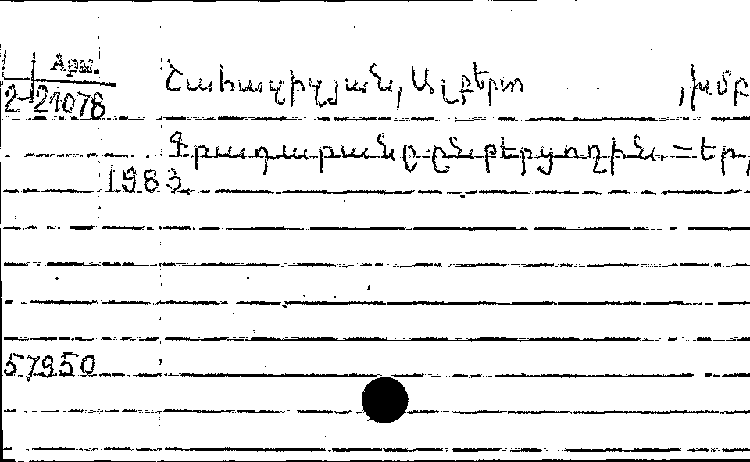 Арм.
2-21078 Շահազիզյան, Ալբերտ , խմբ
Գրադարանը ընթերցողին. – Եր.,
1983.
57950